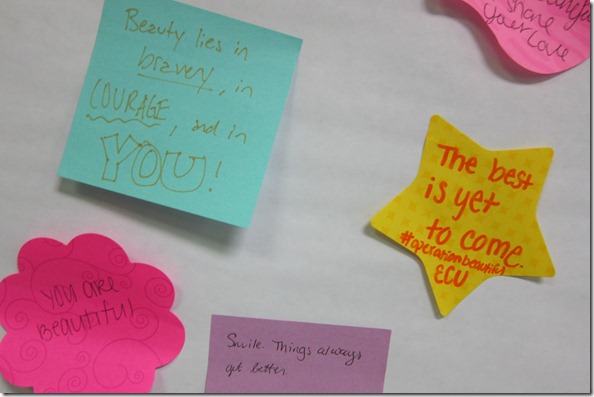 Beauty lies in
bravery, in
COURAGE, and in
YOU!
share
your love
The best
is yet
to come.
#operationbeautiful
ECU
you are
Beautiful
Smile. Things always
get better.